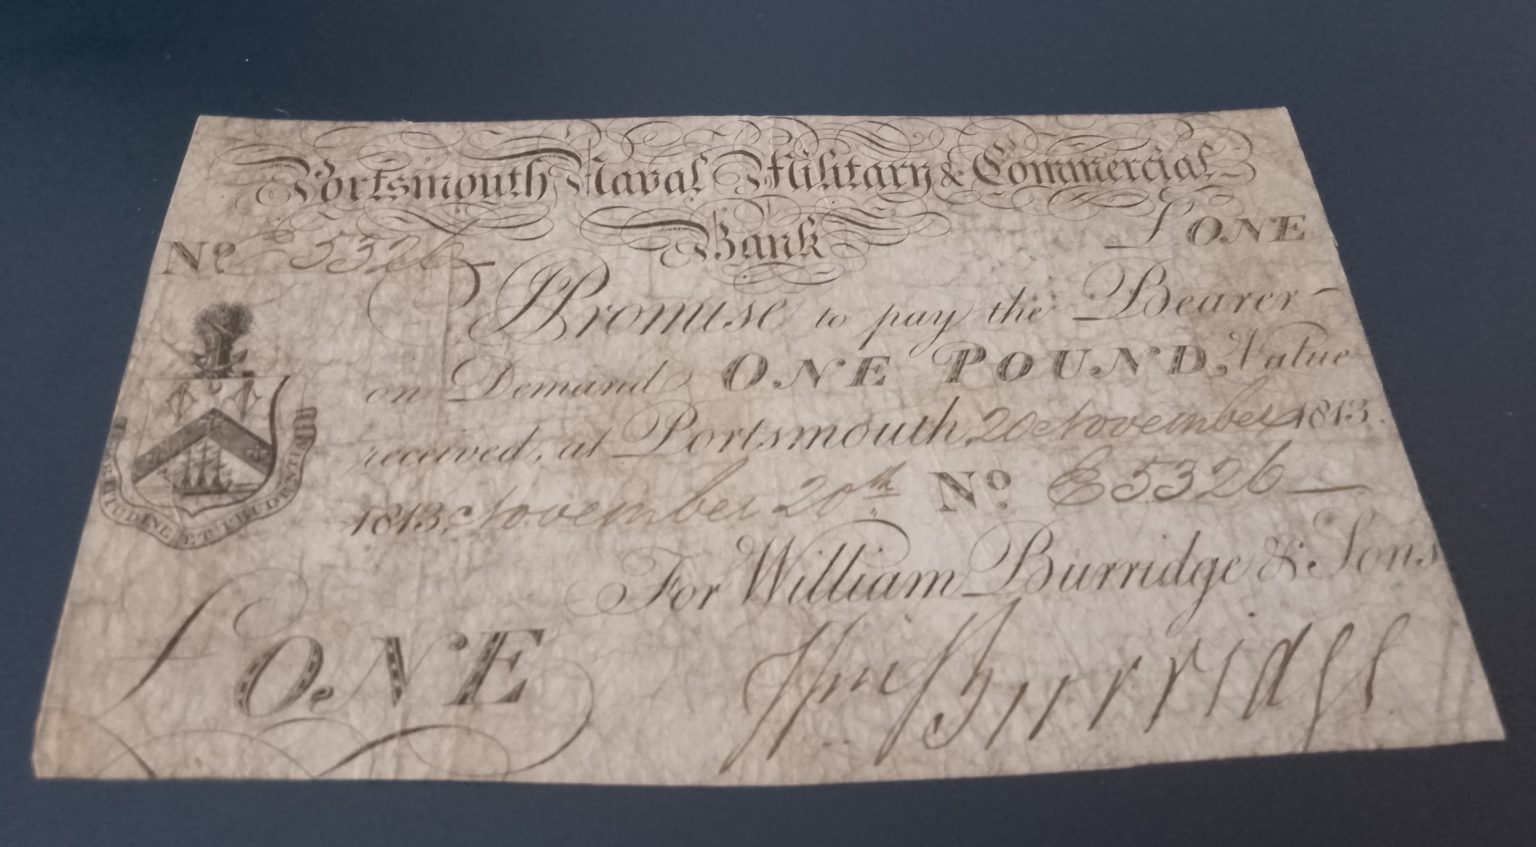 Portsmouth Naval Military & Commercial
Bank
No E 5326
£ONE
I Promise to pay the Bearer
on Demand ONE POUND, Value
received, at Portsmouth 20 November 1813.
1813, November 20th No E 5326
For William Burridge & Sons
£ONE
Wm Burridge
FORTITUDINE ET PRUDENTIA